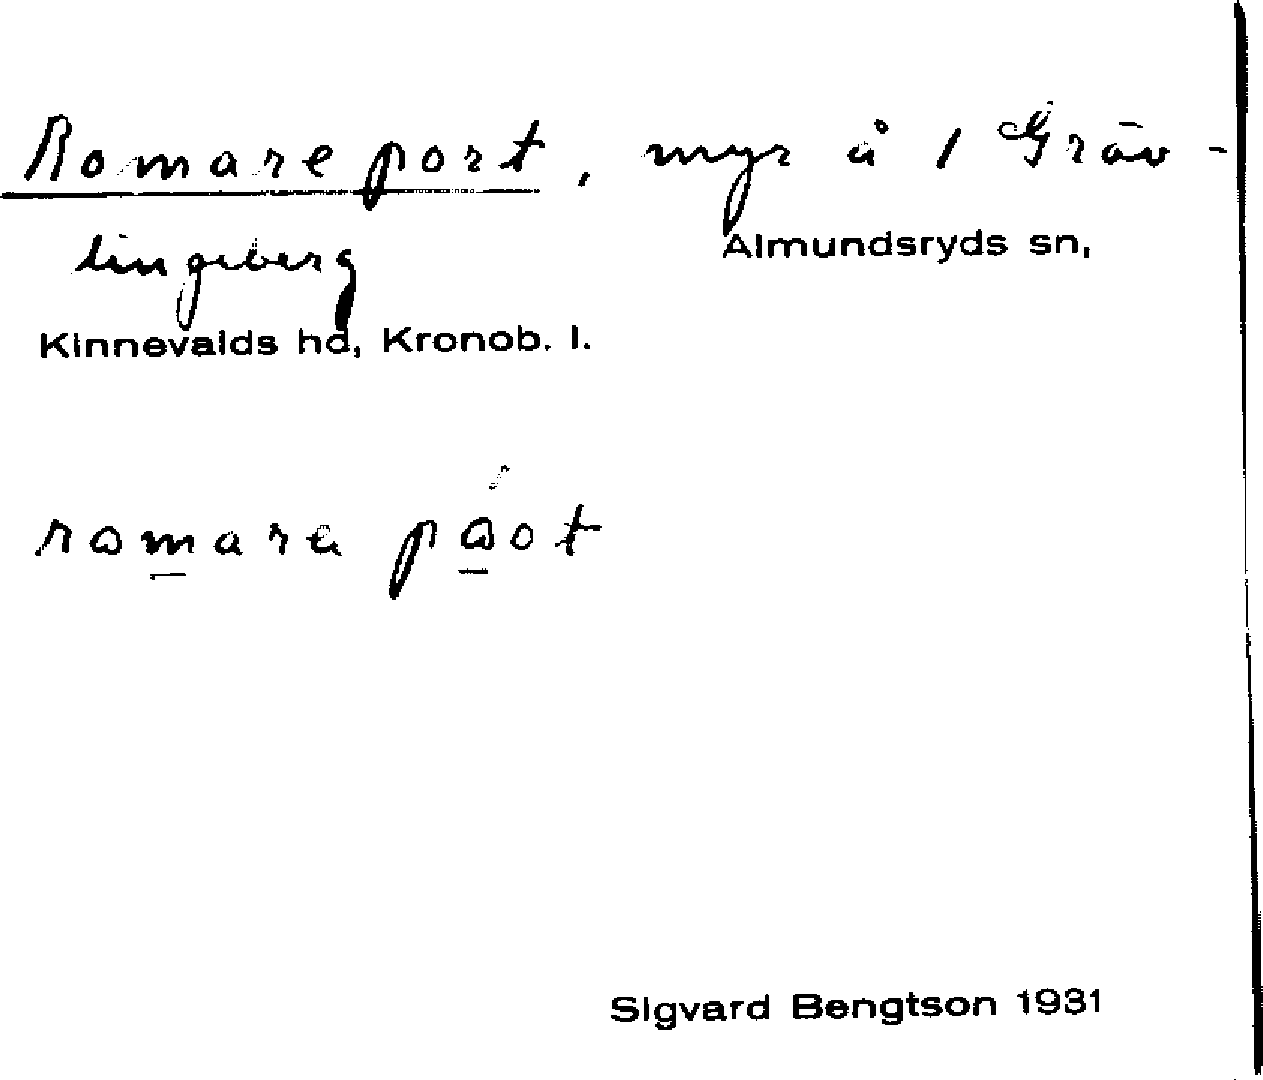 Romareport, myr å 1 Gräv-
lingeberg
Almundsryds sn,
Kinnevalds hd, Kronob. l.
romara paot
Sigvard Bengtson 1931